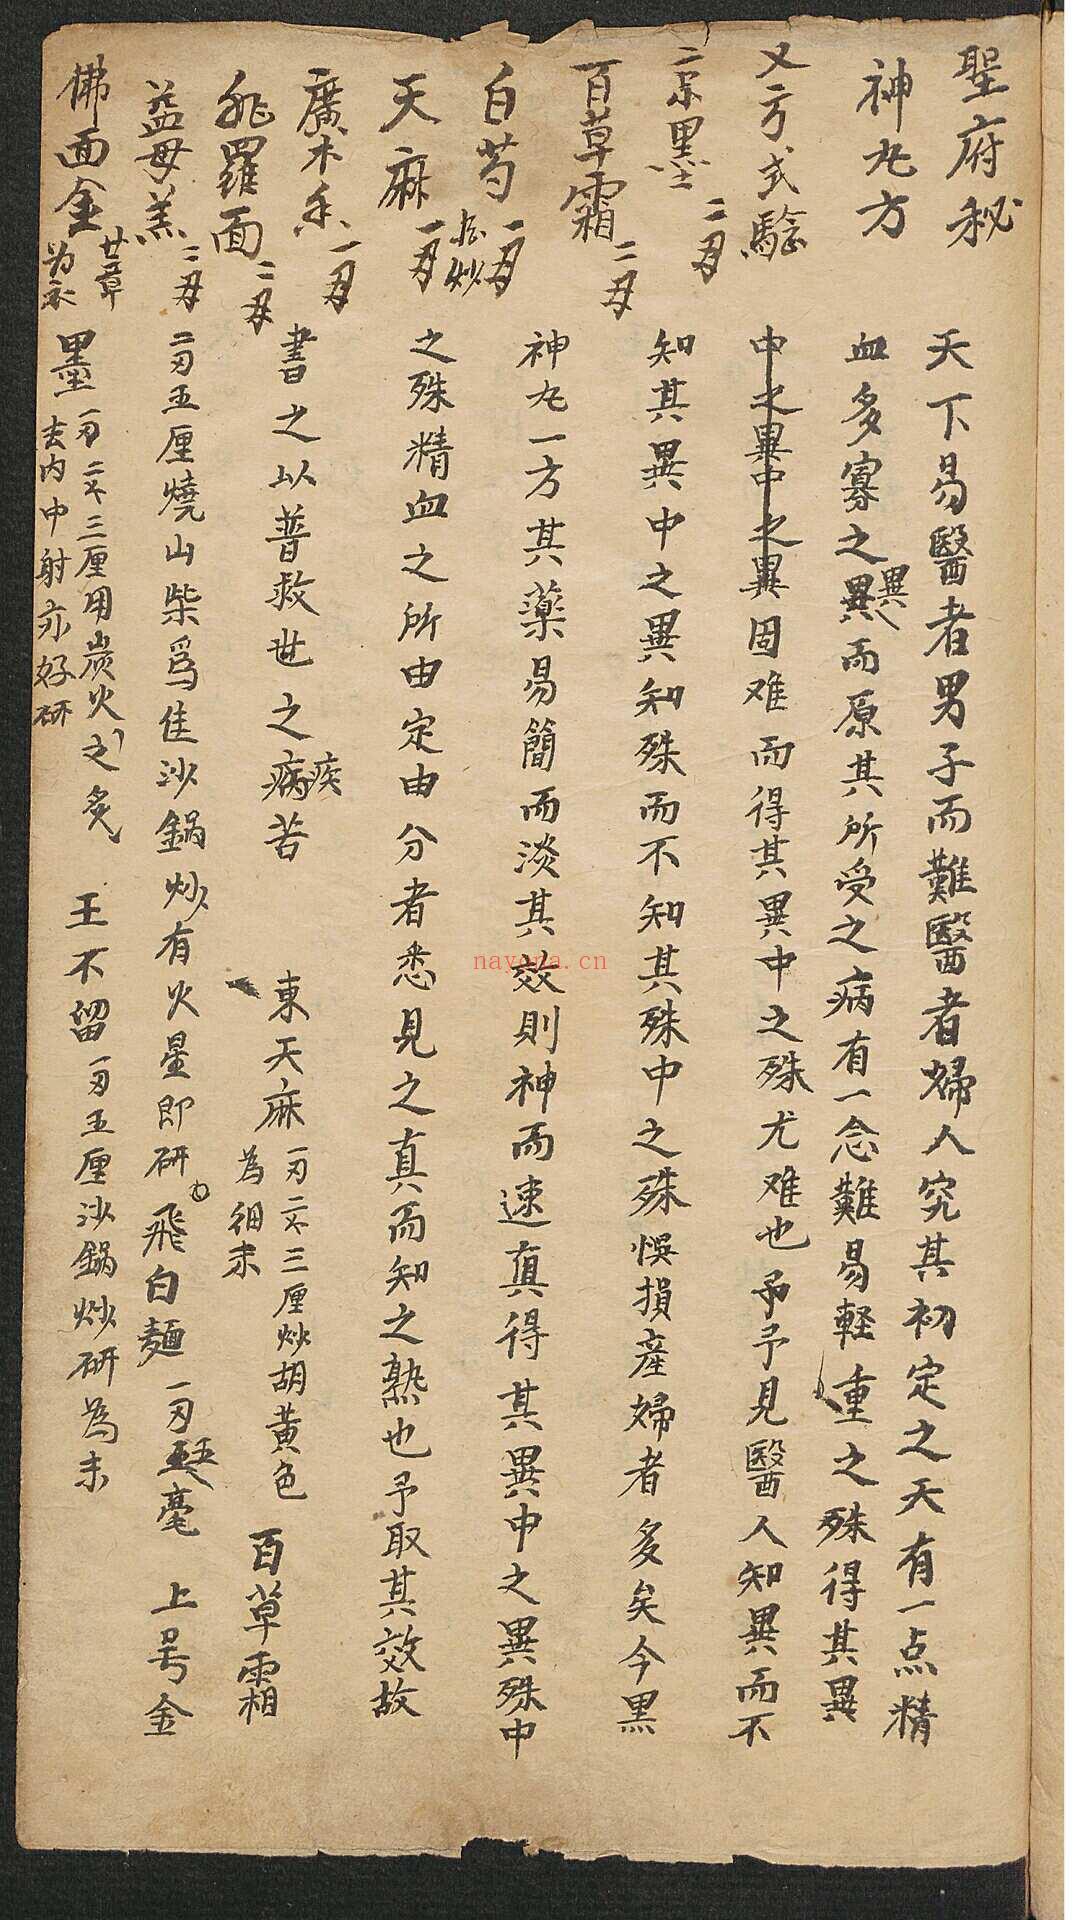 聖府秘
神丸方
又方式驗
二京墨 二刄
百草霜 二刄
白芍 一刄 炒
天麻 一刄
廣木香 一刄
飛羅面 二刄
益母羔 二刄
佛面金 廿章 为衣
天下易醫者男子而難醫者婦人究其初定之天有一点精
血多寡之異異而原其所受之病有一念難易輕重之殊得其異
中之異中之異固难而得其異中之殊尤难也予予見醫人知異而不
知其異中之異知殊而不知其殊中之殊悞損產婦者多矣今黑
神丸一方其藥易簡而淡其效則神而速真得其異中之異殊中
之殊精血之所由定由分者悉見之真而知之熟也予取其效故
書之以普救世之病疾苦 東天麻 一刄二分三厘炒胡黃色 為細末 百草霜
二刄五厘燒山柴爲佳沙鍋炒有火星即研 飛白麵 一刄五毫 上号金
墨 一刄二分三厘用炭火之炙 去内中射亦好研 王不留 一刄五厘沙鍋炒研為末
nayona.cn